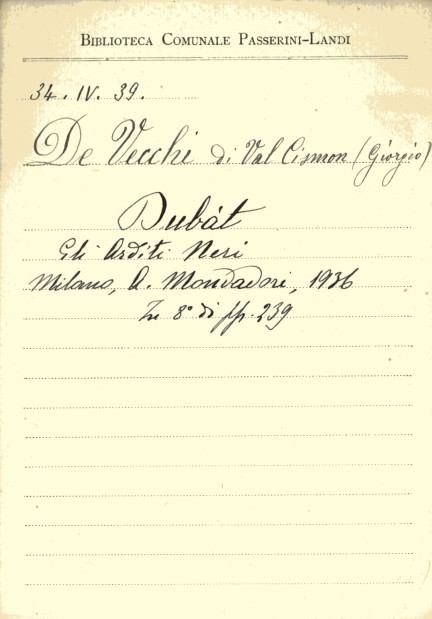 BIBLIOTECA COMUNALE PASSERINI-LANDI
34. IV. 39.
De Vecchi di Val Cismon (Giorgio)
Dubàt
Gli Arditi Neri
Milano, A. Mondadori, 1936
In 8° di pp. 239